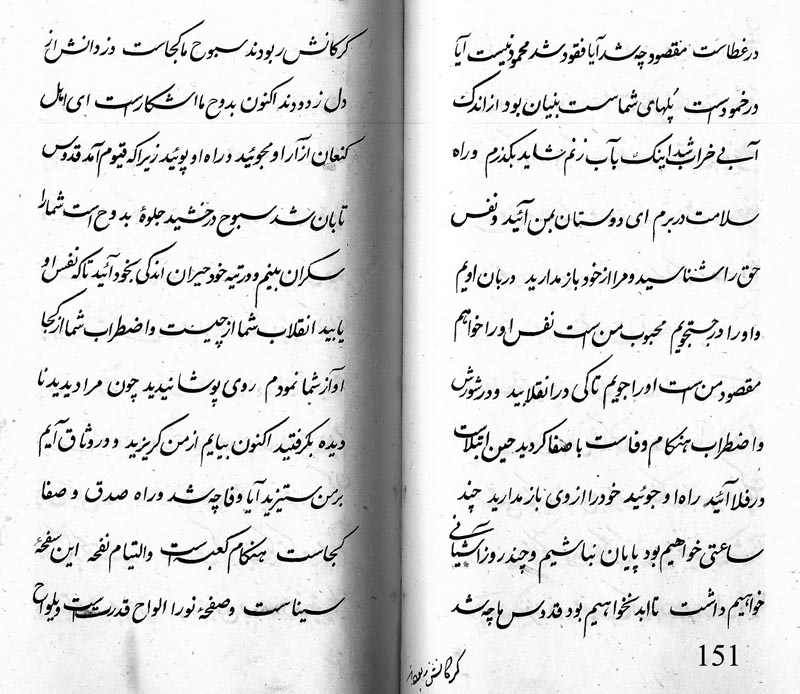 در غطاست مقصود چه شد آیا فقود شد محمود نیست آیا
در خمود است پلهای شماست بنیان بود از اندک
آبی خراب شد اینک با آب رزنم شاید بگذرم وراه
سلامت در برم ای دوستان بمن آئید و نفس
حق را شناسید و مرا از خود باز مدارید دربان اویم
و او را در جستجویم محبوب من است نفس او را خواهم
مقصود من است او را جویم تا کی در انقلابید و در شورش
و اضطراب هنگام وفاست با صفا گردید حین ابتلاست
در فلا آئید راه او جوئید خود را از وی باز مدارید چند
ساعتی خواهیم بود پایان نباشیم و چند روز آشیانی
خواهیم داشت تا ابد نخواهیم بود قدوس ها چه شد
151
کرکانش ربودند سبوح ما کجاست دزدانش از
دل زدودند اکنون بدوح ما اشکار است ای اهل
کنعان از آر او مجوئید وراه او پوئید زیرا که قیوم آمد قدوس
تابان شد سبوح درخشید جلوهٔ بدوح است شما را
سکران بینم و در تیه خود حیران اندکی بخود آئید تا که نفس او
یابید انقلاب شما از چیست و اضطراب شما از کجا
آواز شما نمودم روی پوشانیدید چون مرا دیدید نا
دیده بگرفتید اکنون بیایم از من گریزید و در وثاق آیم
بر من ستیزید آیا وفا چه شد وراه صدق و صفا
کجاست هنگام کعبه است والتیام نفحه این سفحهٔ
سیناست و صفحهٔ نورا الواح قدرت است و بلواح
کرکانش ربودند